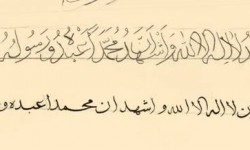 لا اله الا الله وَاَشْهَدُ اَنَّ مُحَمَّدًا عَبْدُهُ وَرَسُولُهُ
ن لا اله الا الله و اشهد ان محمدا عبده و